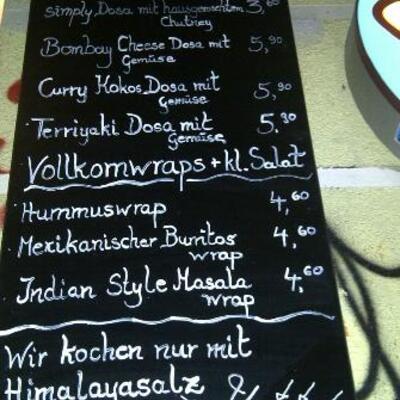 simply Dosa mit hausgemachtem 3,60
Chutney
Bombay Cheese Dosa mit 5,90
Gemüse
Curry Kokos Dosa mit 5,90
Gemüse
Terriyaki Dosa mit 5,90
Gemüse
Vollkornwraps + kl. Salat
Hummuswrap 4,60
Mexikanischer Burritos 4,60
wrap
Indian Style Masala 4,60
wrap
Wir kochen nur mit
Himalayasalz